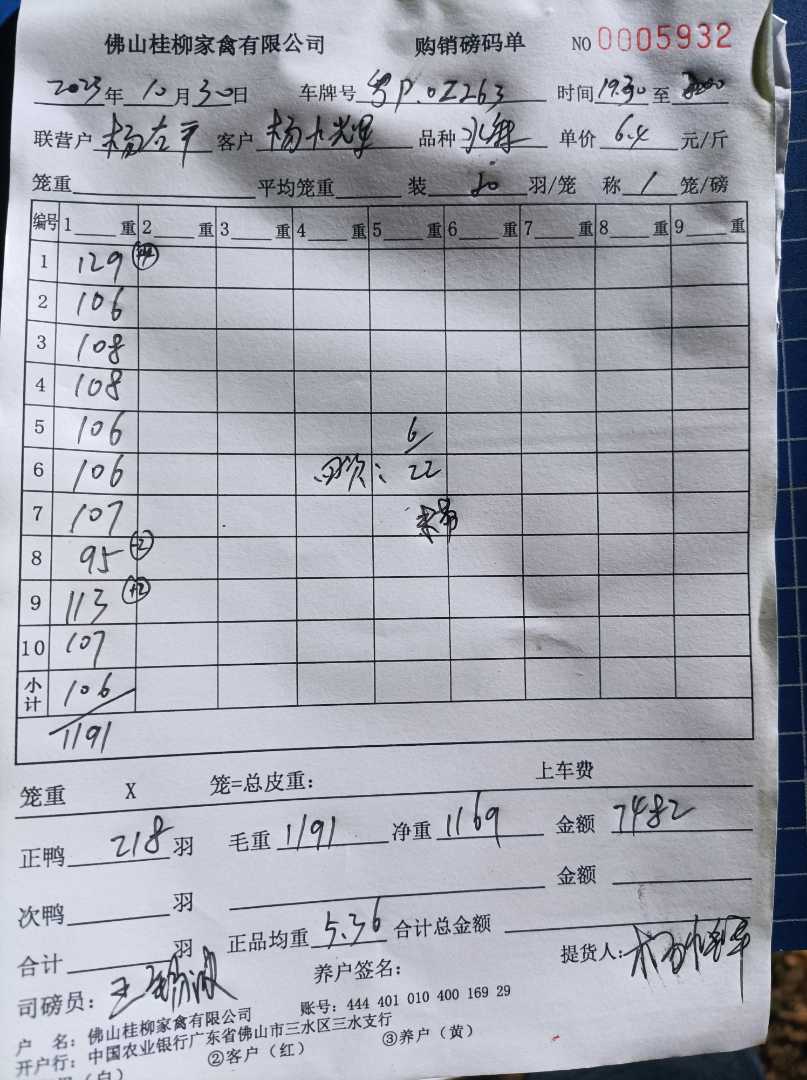 佛山桂柳家禽有限公司 购销磅码单 NO 0005932
2023年10月30日 车牌号 粤P.0Z263 时间 19.30 至
联营户 杨 客户 杨 品种 水鸭 单价 6.4 元/斤
笼重 平均笼重 装 20 羽/笼 称 1 笼/磅
编号 1 重 2 重 3 重 4 重 5 重 6 重 7 重 8 重 9 重
1 129
2 106
3 108
4 108
5 106 6
6 106 22
7 107
8 95 -2
9 113 +2
10 107
小计 106
1191
笼重 X 笼=总皮重: 上车费
正鸭 218 羽 毛重 1191 净重 1169 金额 7482
次鸭 羽 金额
合计 羽 正品均重 5.36 合计总金额
司磅员: 养户签名: 提货人:
户 名: 佛山桂柳家禽有限公司 账号: 444 401 010 400 169 29
开户行: 中国农业银行广东省佛山市三水区三水支行
(白) ②客户(红) ③养户(黄)